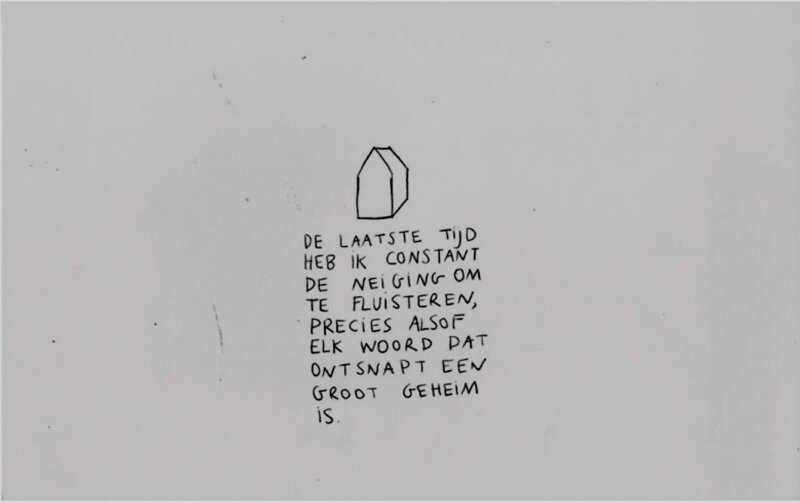 DE LAATSTE TIJD
HEB IK CONSTANT
DE NEIGING OM
TE FLUISTEREN,
PRECIES ALSOF
ELK WOORD DAT
ONTSNAPT EEN
GROOT GEHEIM
IS.